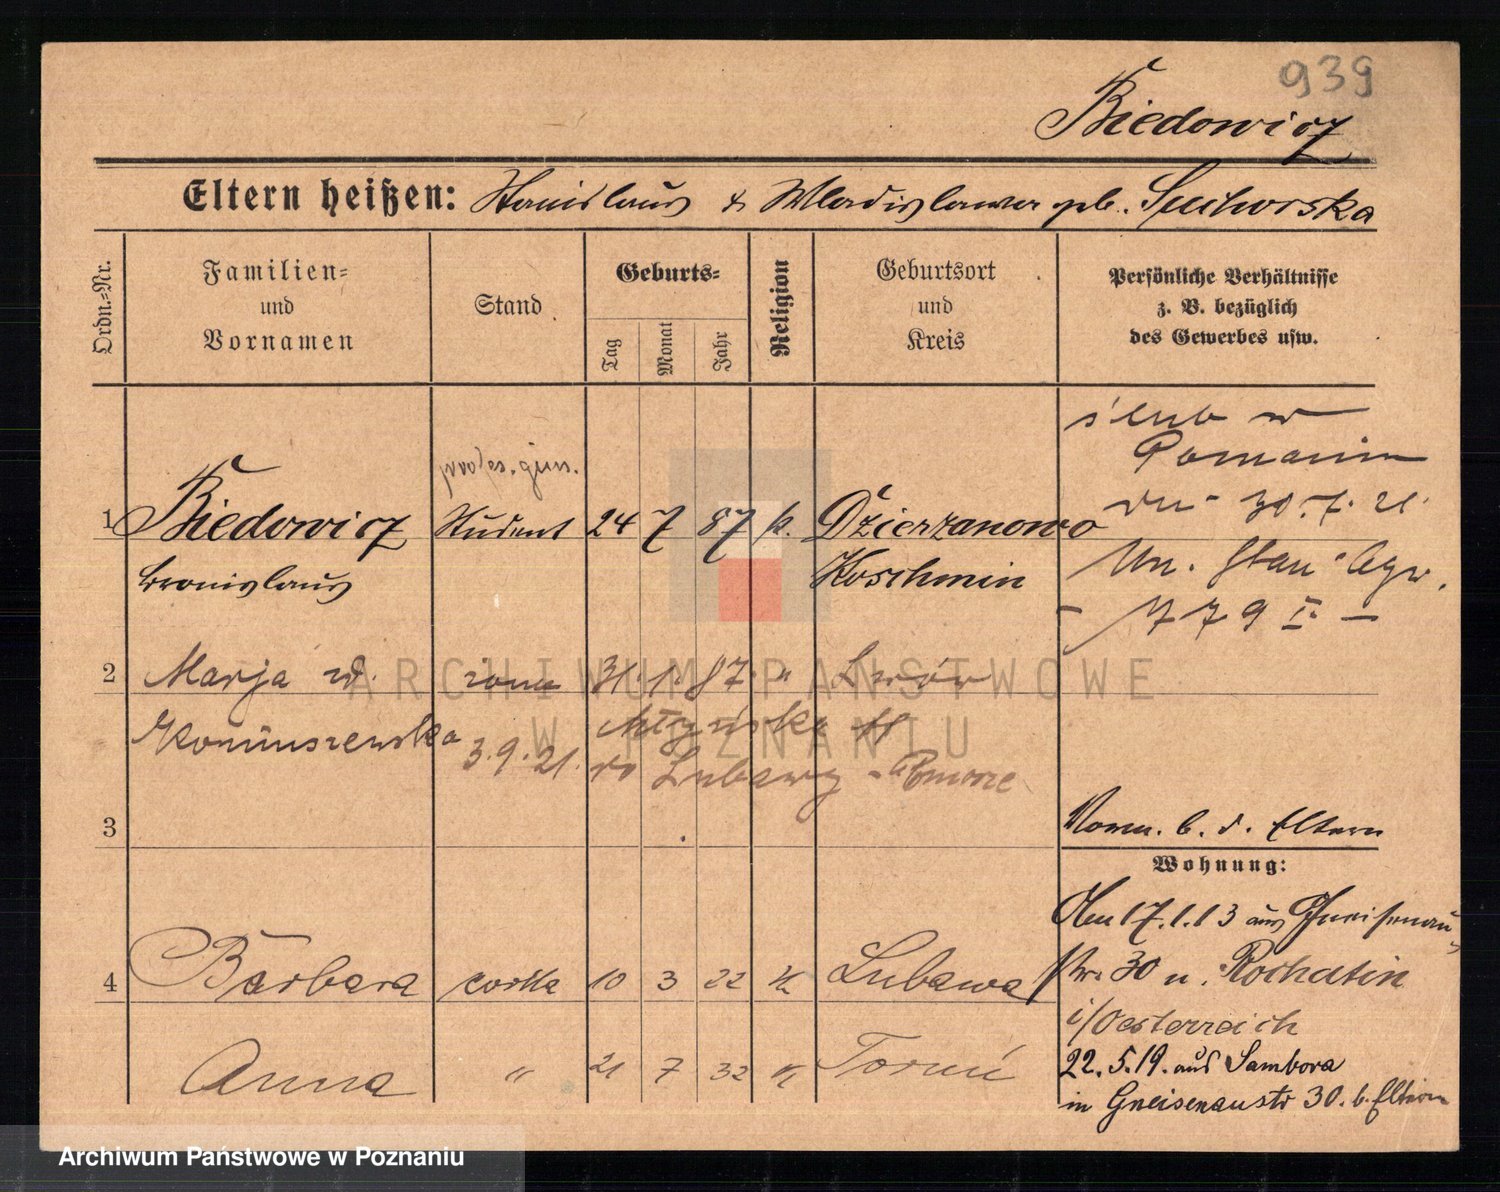 939
Biedowicz
Eltern heißen: Stanislaus & Wladislawa geb. Suchorska
Ordn.=Nr.
Familien= und Vornamen
Stand
Geburts=
Tag
Monat
Jahr
Religion
Geburtsort und Kreis
Persönliche Verhältnisse z. B. bezüglich des Gewerbes usw.
ślub w
Poznaniu
dn. 30.7.21.
779 I. —
prof. gimn.
1 Biedowicz Student 24 7 87 k. Dzierzanowo
Bronislaus Koschmin
2 Marja ur. żona 31. 1. 87. " Lwów
Komuszewska
3.9.21. do Lubawy - Pomorze
3
Vorm. b. d. Eltern
Wohnung:
Am 17.1.13 aus Gneisenau-
str. 30 n. Rohatin
i/Oesterreich
22.5.19. aus Sambora
in Gneisenaustr 30. b. Eltern
4 Barbara corka 10 3 22 k Lubawa
Anna " 21 7 32 k Toruń
ARCHIWUM PAŃSTWOWE
W POZNANIU
Archiwum Państwowe w Poznaniu